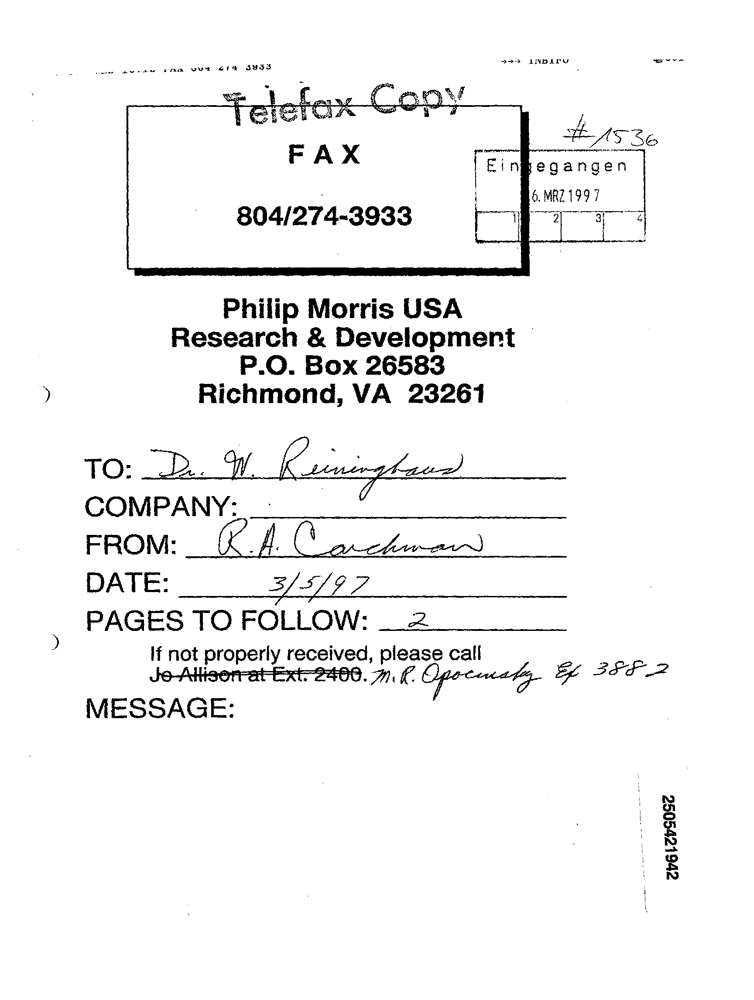 FAX 804 274 3933 →→→ INBIFO
Telefax Copy
# 1536
FAX
Eingegangen
6. MRZ 1997
804/274-3933
1 2 3 4
Philip Morris USA
Research & Development
P.O. Box 26583
Richmond, VA 23261
TO: Dr. W. Reininghaus
COMPANY:
FROM: R.A. Carchman
DATE: 3/5/97
PAGES TO FOLLOW: 2
If not properly received, please call
Jo Allison at Ext. 2400. M.R. Opocensky Ex 3882
MESSAGE:
2505421942